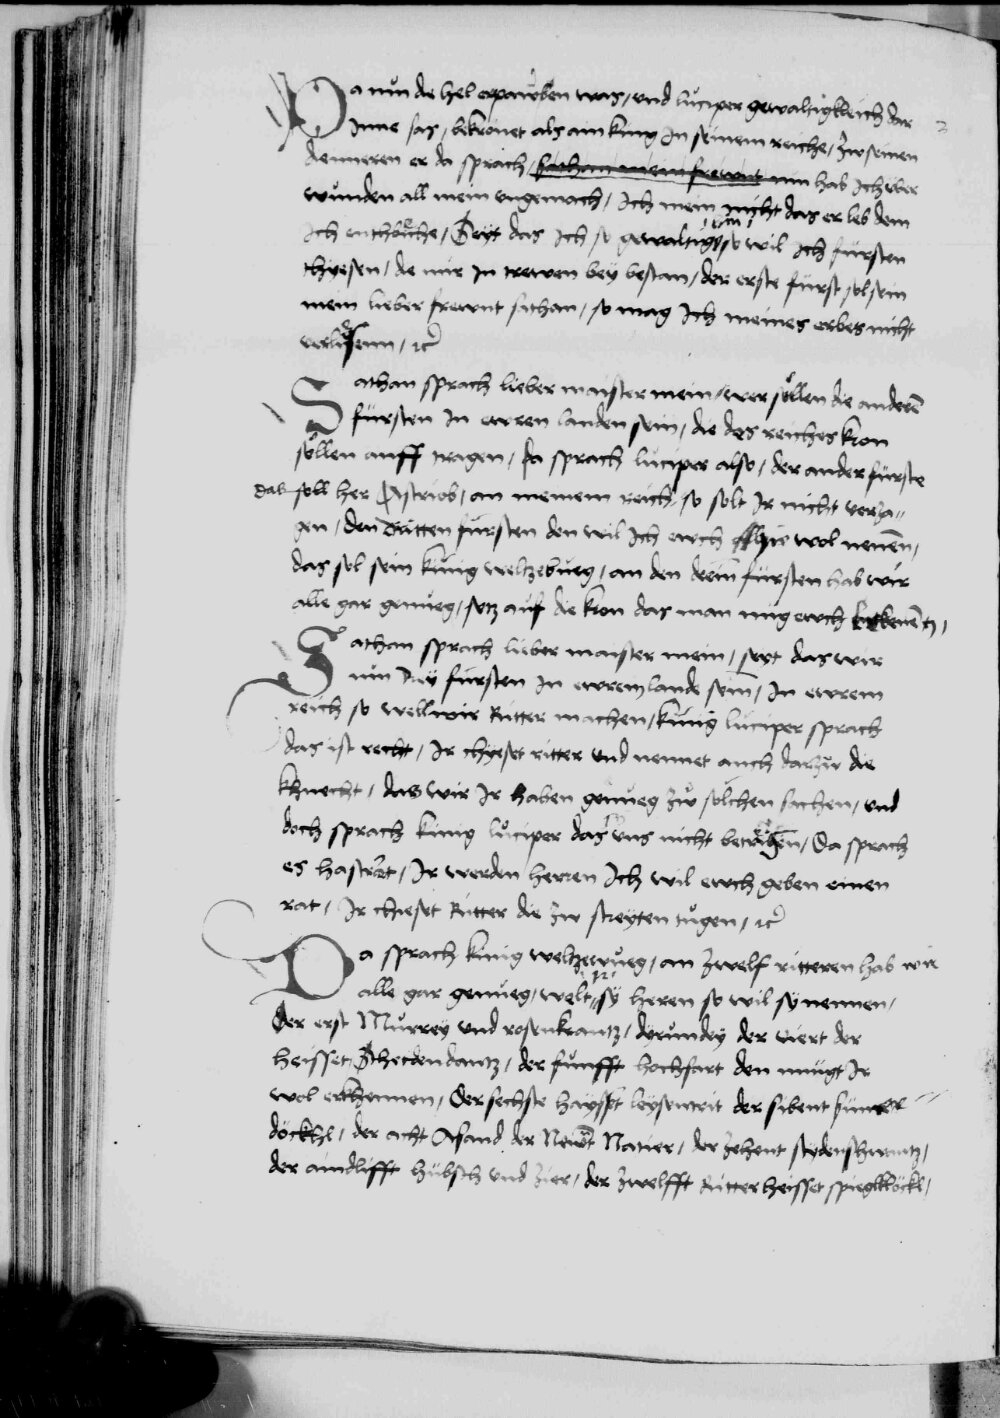 Da nun die hel erpawben was / und luciper gewaltigkleich dar
Inne sas / bekrönet als ain kinig In seinem reiche / Zw seinen
denneren er da sprach / sathan mein frewnt nun hab Ich uber
wunden all mein ungemach / Ich mein nicht das er leb dem
Ich entbeuche / Seyt das Ich so gewaltig pin so wil Ich fürsten
chyesen / die mir In trewen bey bestan / der erste fürst sol sein
mein lieber frewnt sathan / so mag Ich meines erbes nicht
verliesenn / rc
Sathan sprach lieber maister mein / wer söllen die anderē
fürsten In ewren landen sein / die des reiches kron
söllen auff tragen / Da sprach luciper also / der ander fürste
das soll her Astriob / an meinem reich so solt Ir nicht verza„
gen / Den dritten fürsten den wil Ich ewch hie wol nenēn /
das sol sein kunig weltzebueg / an den drein fürsten hab wir
alle gar genueg / setz auf die kron das man mug ewch
Sathan sprach lieber maister mein / seyt das wir
nun drey fürsten In ewrem lande sein / In ewrem
reich so wellwir Ritter machen / kunig luciper sprach
das ist recht / Ir chyeset ritter und nennet auch darzw die
khnecht / das wir Ir haben genueg zw solchen sachen / und
doch sprach kinig luciper das uns nicht betriegen / Da sprach
es hastrat / Ir werden herren Ich wil ewch geben einen
rat / Ir chieset Ritter die zw streyten tugen / rc
Da sprach kinig weltzewueg / an zwelf ritteren hab wir
alle gar genueg / welt ir sy heren so wil sy nennen /
Der erst Murrey und rosenkrantz / dyrundey der viert der
heisset Schetdendantz / der funfft hochfart den mugt Ir
wol erkhennen / Der sechste haysset leysentrit der sibent
döckhl / der acht Asand der Newnt Natier / der zehent sydenschwantz /
der aindlifft hubsch und zier / der zwelfft Ritter heisset spieglklöckl /